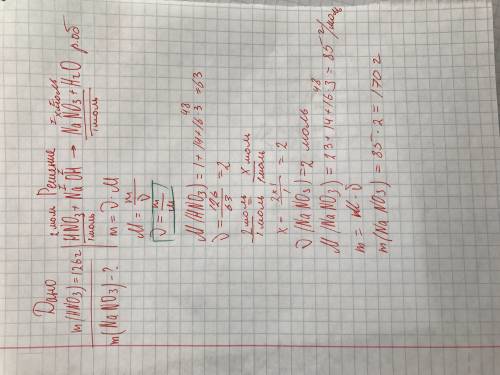 Дано
m(HNO3)=126г
m(NaNO3)-?
Решение
2 моль x моль
HNO3 + NaOH → NaNO3 + H2O р.об
1 моль 1 моль
m = ν·M
M = m/ν
ν = m/M
M(HNO3) = 1 + 14 + 16·3 = 63
48
ν = 126/63 = 2
2 моль/1 моль = x моль/1 моль
x = 2×1/1 = 2
ν(NaNO3) = 2 моль
M(NaNO3) = 23 + 14 + 16·3 = 85 г/моль
48
m = M·ν
m(NaNO3) = 85·2 = 170 г